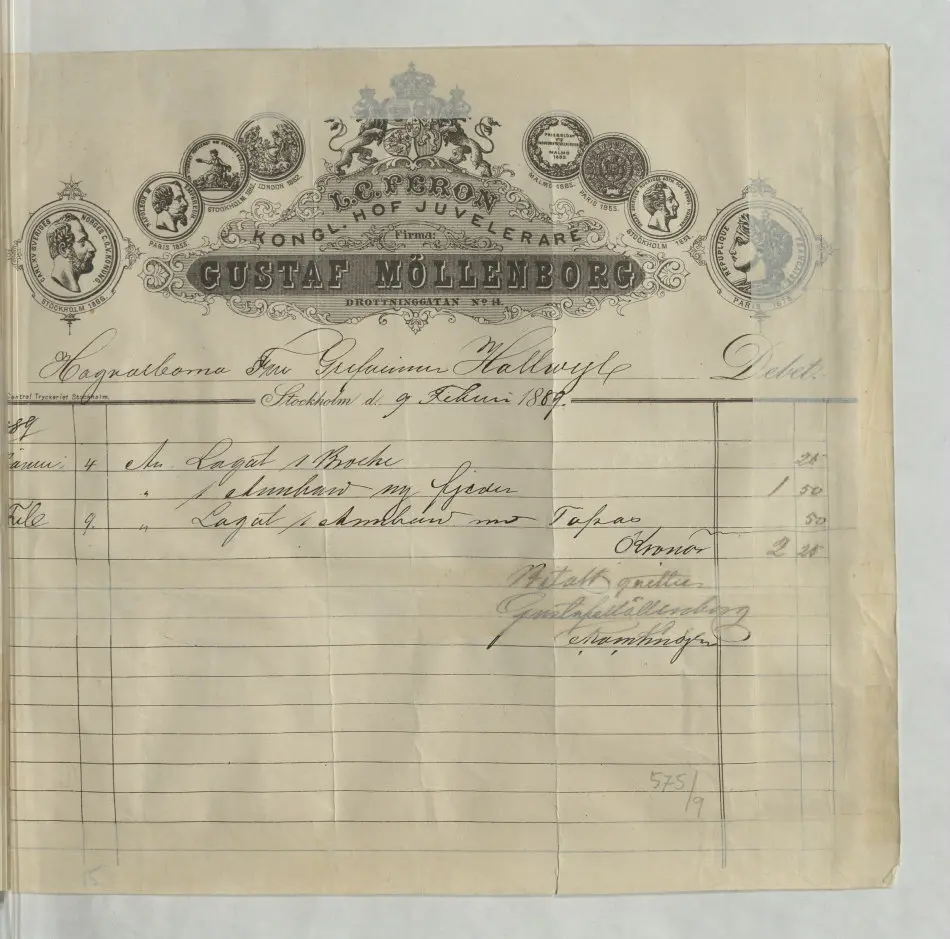 L. C. FERON
KONGL. HOF JUVELERARE
Firma:
GUSTAF MÖLLENBORG
DROTTNINGGATAN Nº H.
CARL XV SVERIGES NORGES G. O. V. KONUNG
STOCKHOLM 1866.
NAPOLEON III EMPEREUR
PARIS 1855.
STOCKHOLM 1851.
LONDON 1862.
MALMÖ 1865.
PARIS 1855.
STOCKHOLM 1851.
REPUBLIQUE FRANÇAISE
PARIS 1878
Högvälborna Fru Grefvinnan Hallwyl Debet.
Central Tryckeriet Stockholm.
Stockholm d. 9 Februri 1889.
89
4 An Lagat 1 Broche 25
" 1 Armband ny fjeder 1 50
Feb 9. " Lagat 1 Armband med Topas 50
Kronor 2 25
Betalt qvitteras
Gustaf Möllenborg
575/9
15